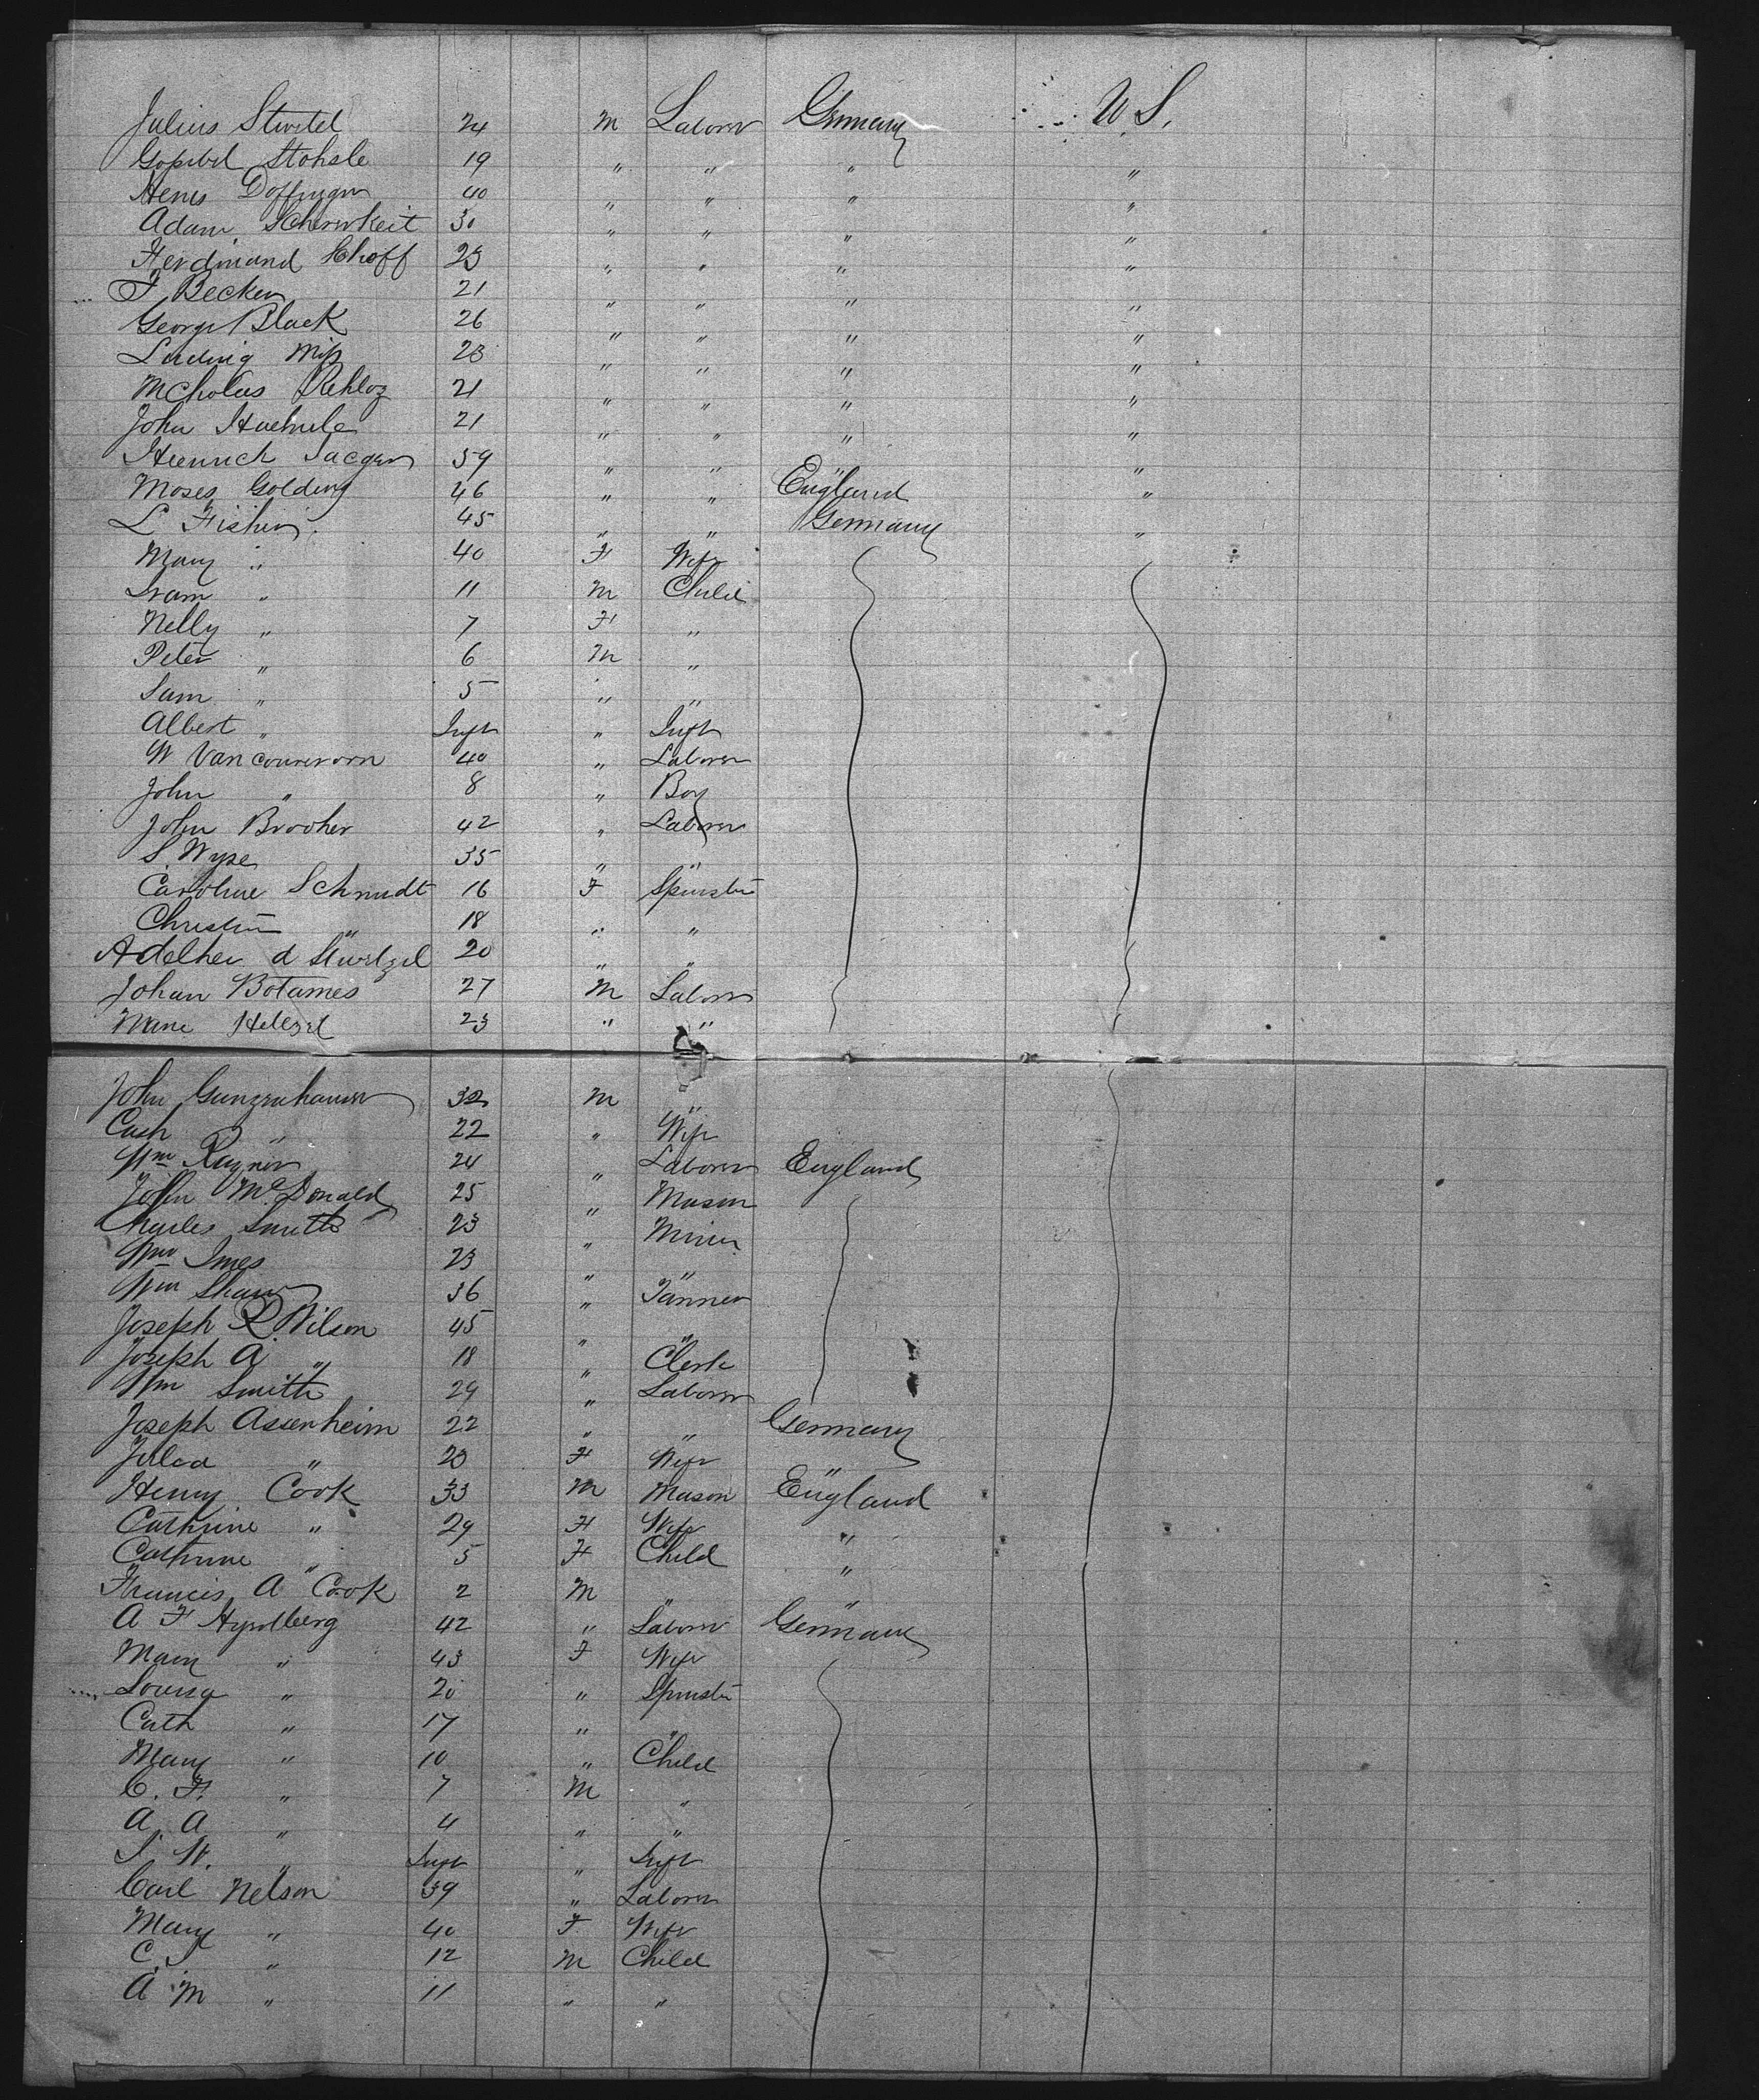 Julius Stwitel 24 M Laborer Germany U.S.
Stohsle 19 " " " "
40 " " " "
Adam 30 " " " "
Ferdinand 23 " " " "
F Becker 21 " " " "
George Black 26 " " " "
Ludwig 23 " " " "
Nicholas 21 " " " "
John Huehule 21 " " " "
Heinrich Jaeger 59 " " " "
Moses Golding 46 " " England "
L Fisher 45 " " Germany "
Mary " 40 F Wife
" 11 M Child
Nelly " 7 F "
Peter " 6 M "
Sam " 5 " "
Albert " Inft " Inft
W 40 " Laborer
John " 8 " Boy
John Brooher 42 " Laborer
S. Wyse 35 " "
Caroline Schmidt 16 F Spinster
Christin " 18 " "
Adelhei d Stwetzel 20 " "
Johan Botames 27 M Laborer
23 " "
John Gunzenhauser 32 M "
Cath " 22 " Wife
Wm Rayner 24 " Laborer England
John McDonald 25 " Mason
Charles Smith 23 " Miner
Wm Imes 23 " "
Wm Shaw 36 " Tanner
Joseph R Wilson 45 " "
Joseph A " 18 " Clerk
Wm Smith 29 " Laborer
Joseph Assenheim 22 " " Germany
" 23 F Wife "
Henry Cook 33 M Mason England
Cathrine " 29 F Wife "
Cathrine " 5 F Child "
Francis A Cook 2 M " "
A F Hyrdberg 42 " Laborer Germany
Mary " 43 F Wife
Louisa " 20 " Spinster
Cath " 17 " "
Mary " 10 " Child
C. F. " 7 M "
A. A " 4 " "
W. " Inft " Inft
Carl Nelson 39 " Laborer
Mary " 40 F Wife
" 12 M Child
A M " 11 " "